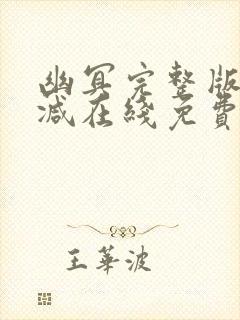 幽冥完整版
减在綫免費
王華波